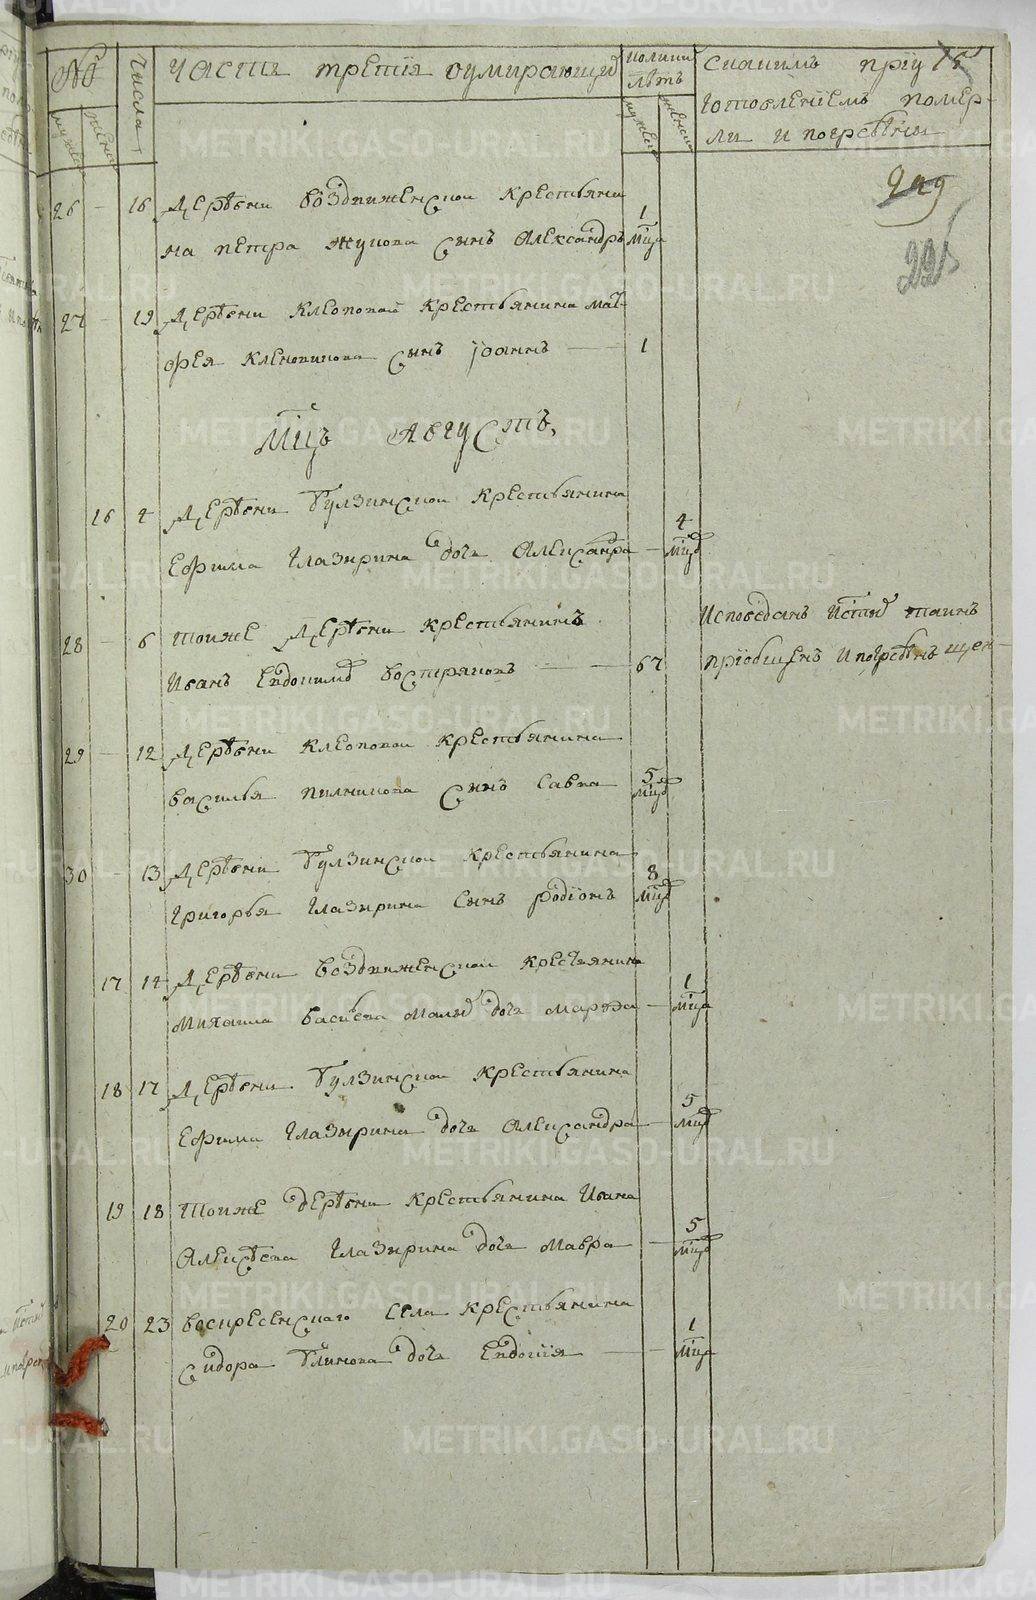 №
мужеск
женск
Числа
Часть третія оумирающих
Коликихъ лѣтъ
мужеск
женск
Скакимъ пріу
готовленіемъ помер-
ли и погребены
249
225
26 — 16 Деревни Воздвиженской крестьяни
на Петра Жукова сынъ Александръ 1 мца
27 — 19 Деревни Клеопокой крестьянина Мат-
фея сынъ Іоаннъ — 1
Мцъ Августъ,
16 4 Деревни Булзинской крестьянина
Ефима Глазырина дочь Александра — 4 мцы
28 — 6 Тойже деревни крестьянинъ
Иванъ Евдокимов Востряковъ — 67
Исповеданъ тайнъ
пріобщенъ и погребенъ
29 — 12 Деревни Клеопокой крестьянина
Василья Пилникова сынъ Савва 5 мцов
30 — 13 Деревни Булзинской крестьянина
Григорья Глазырина сынъ Родіонъ 8 мцов
17 14 Деревни Воздвиженской крестьянина
Михаила дочь Марфа — 1 мца
18 17 Деревни Булзинской крестьянина
Ефима Глазырина дочь Александра — 5 мцов
19 18 Тойже деревни крестьянина Ивана
Алексѣева Глазырина дочь Мавра — 5 мцов
20 23 Воскресенскаго села крестьянина
Сидора Блинова дочь Евдокія — 1 мца
METRIKI.GASO-URAL.RU